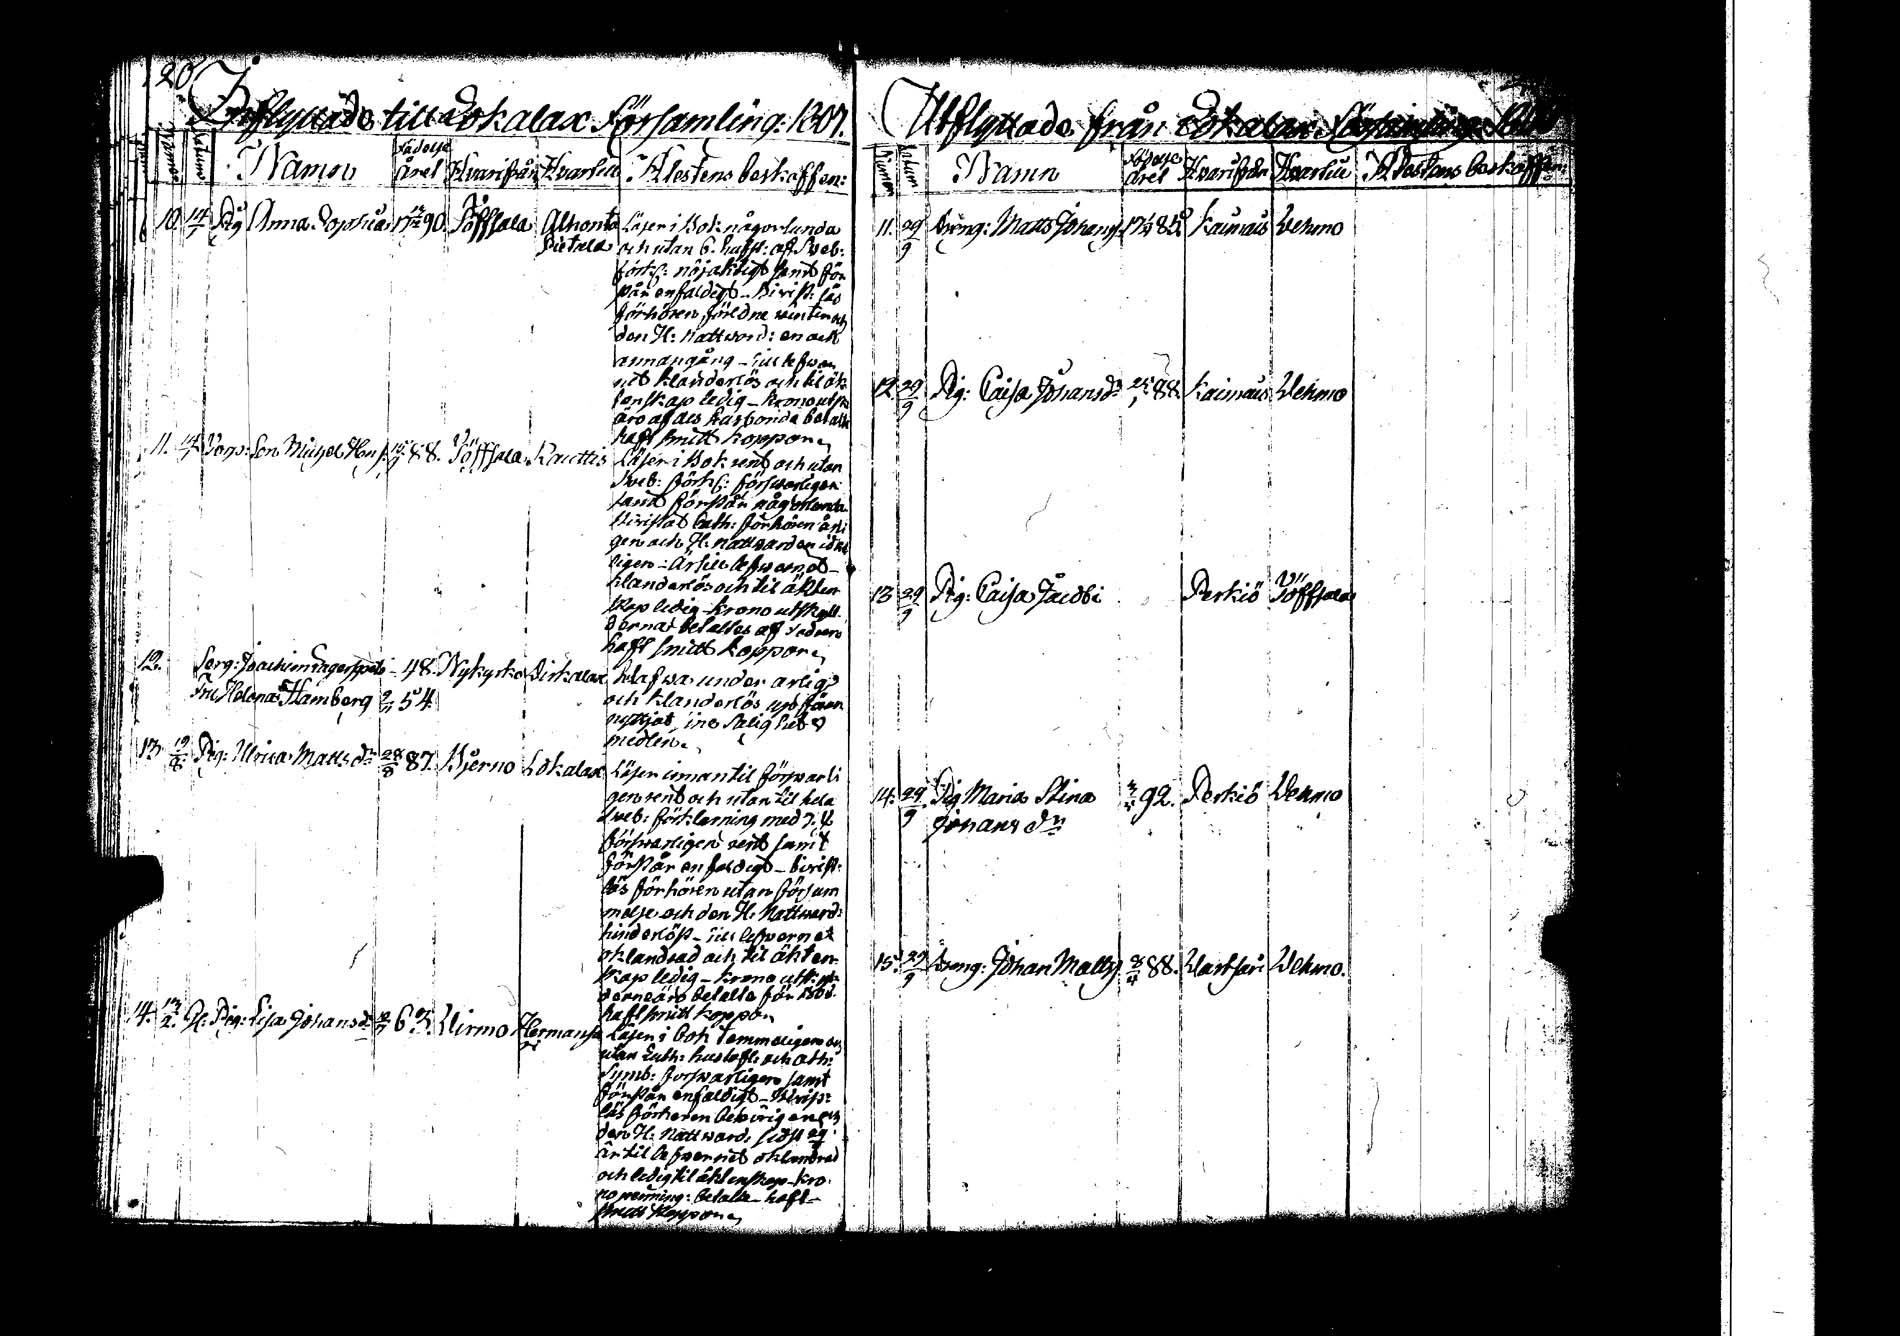 120
Inflyttade till Lokalax Församling: 1807.
Numer Datum Namn Födelse året Hvarifrån Hvarthen Attestens beskaffen:
10. 14/7 Pig Anna Sophia 17 90 Töffsala Alhonto Pietala
Läser i Bok någorlunda
och utan 6. hufst: aft Sveb:
förkl: nöjaktigt samt för
står enfaldigt – Bivist: läs
förhören förledne winter och
den H: Nattward: en och
annan gång – Till lefwer
net klanderlös och til äk
tenskap ledig – krono utsk
äro af des husbonde betalte
haft smitt koppor
11. 14/7 Torp: Son Michel Hans s. 88. Töffsala Kauttis
Läser i Bok rent och utan
Sveb: förkl: förswarligen
samt förstår någorlunda
Bivistat Cath: förhören årli
gen och H: Nattwarden
ligen – Är till lefwernet –
klanderlös och til äkten
skap ledig – krono utskyl
derna betaltes af
haft smitt koppor
12. Serg: Joachim Lagerspets – 48. Nykyrko Birkalax
Fru Helena Hamberg 2/11 54
Hafwa under
och klanderlös upförän
nyttjat sine Salighets
medlen.
13. 19/8 Pig: Ulrica Matts dr 28/8 87. Kjerno Lokalax
Läser innan til förswarli
gen rent och utan til hela
Sveb: förklarning med
förswarligen rent samt
förstår enfaldigt – bivist:
läs förhören utan försum
melse och den H: Nattward:
hinderlöst – Till lefwernet
oklandrad och til äkten
skap ledig – krono utskyl
derne äro betalta för 1808.
haft smitt koppor
14. 13/2. Gl: Pig: Lisa Johans dr 63. Wirmo Hermansa
Läser i bok temmeligen och
utan Luth: hustafl: och ath:
Symb: förswarligen samt
förstår enfaldigt – Bivist:
läs förhören behörigen och
den H: Nattward, sidst 29/
är til lefwernet oklandrad
och ledig til äktenskap – kro
no penning: betalta – haft –
smitt koppor
Utflyttade från Lokalax Församling
Numer Datum Namn Födelse året Hvarifrån Hvarthen Attestens beskaffen:
11. 29/9 Dreng: Matts Johans s. 17 85 Kaimais Wehmo
12 29/9 Pig: Caisa Johans dr 88. Kaimais Wehmo
13 29/9 Pig: Caisa Jacobi Perkiö Töffsala
14. 29/9 Pig Maria Stina 92. Perkiö Wehmo
Johans dr
15. 29/9 Dreng: Johan Matts s. 8/4 88. Wartsari Wehmo.